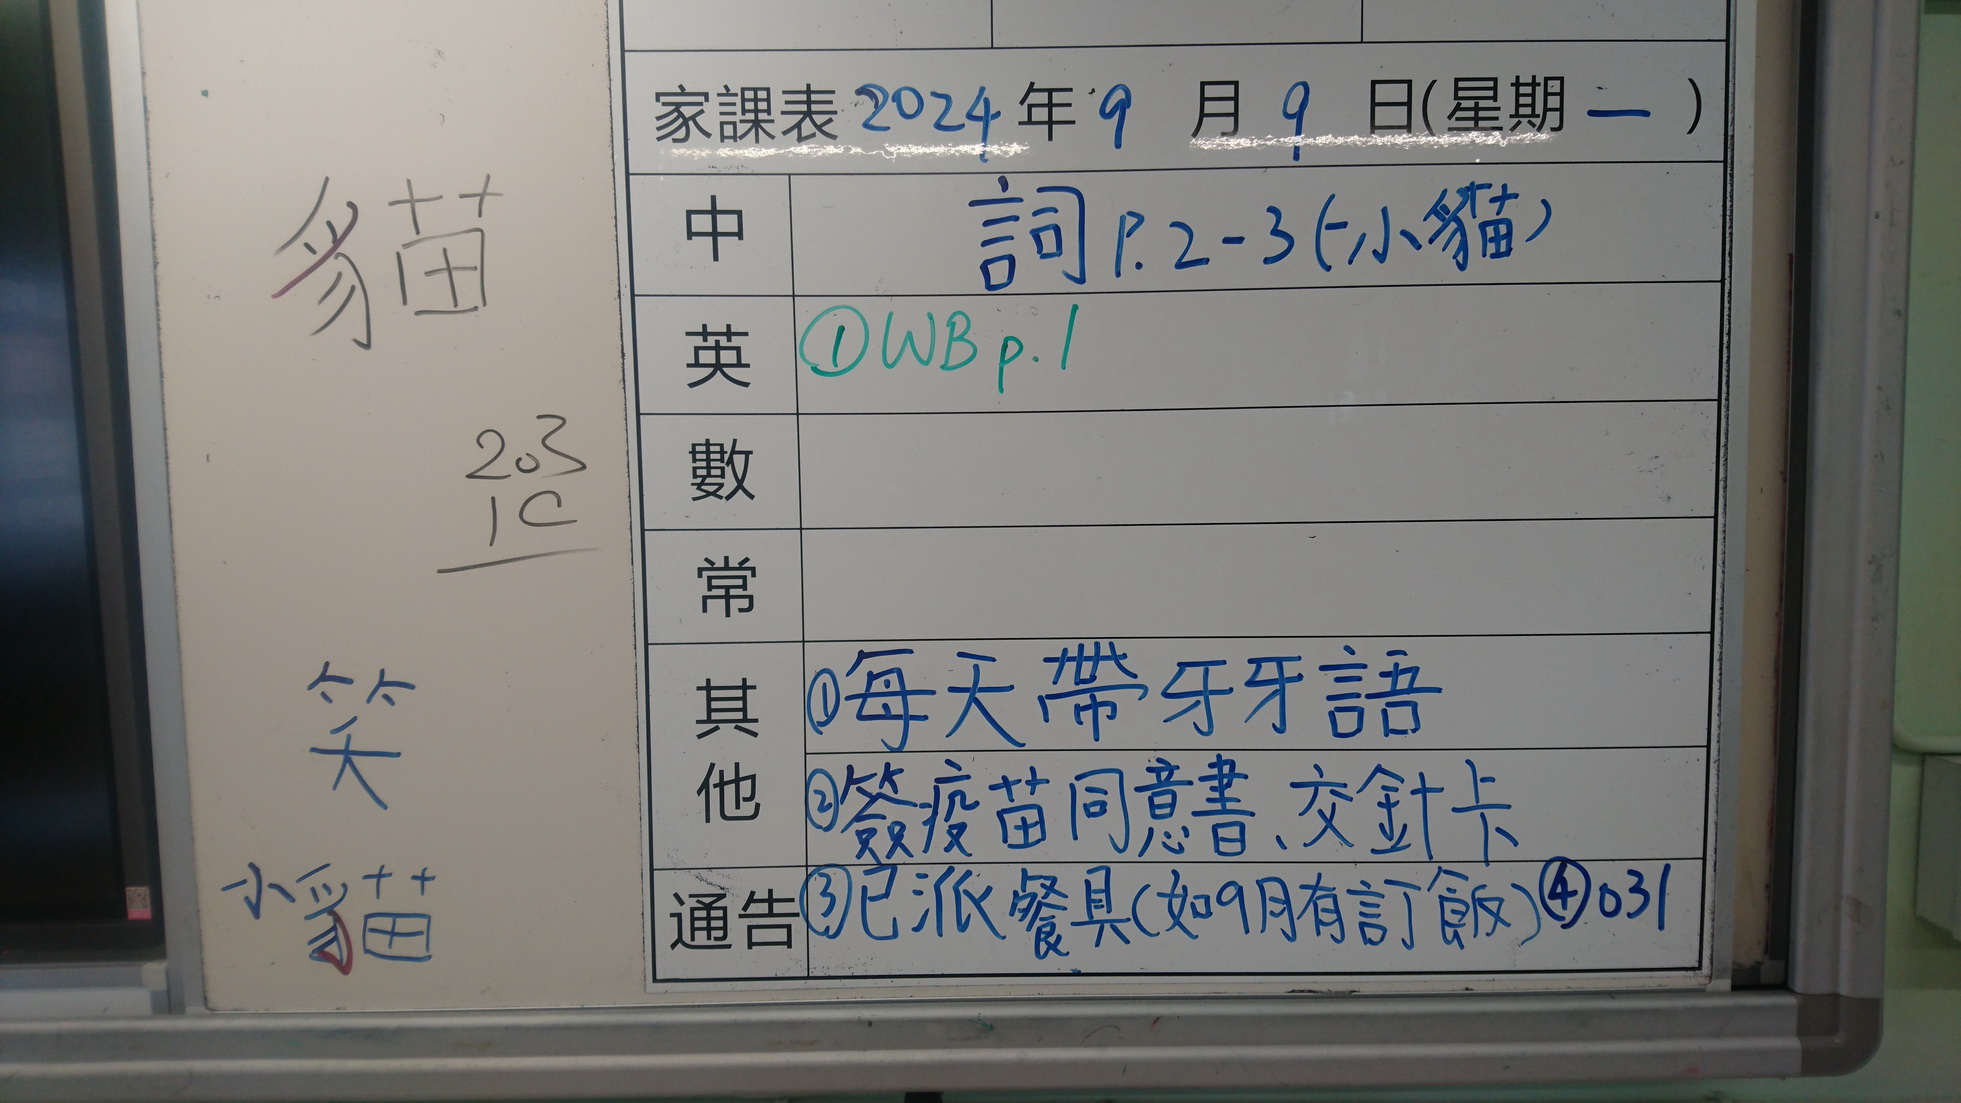 家課表 2024 年 9 月 9 日(星期 一 )
中 詞 P. 2-3 (小貓)
英 ① WB p. 1
數
常
其他
① 每天帶牙牙語
② 簽疫苗同意書、交針卡
通告 ③ 已派餐具(如9月有訂飯) ④ 031
貓
203
1C
笑
小貓